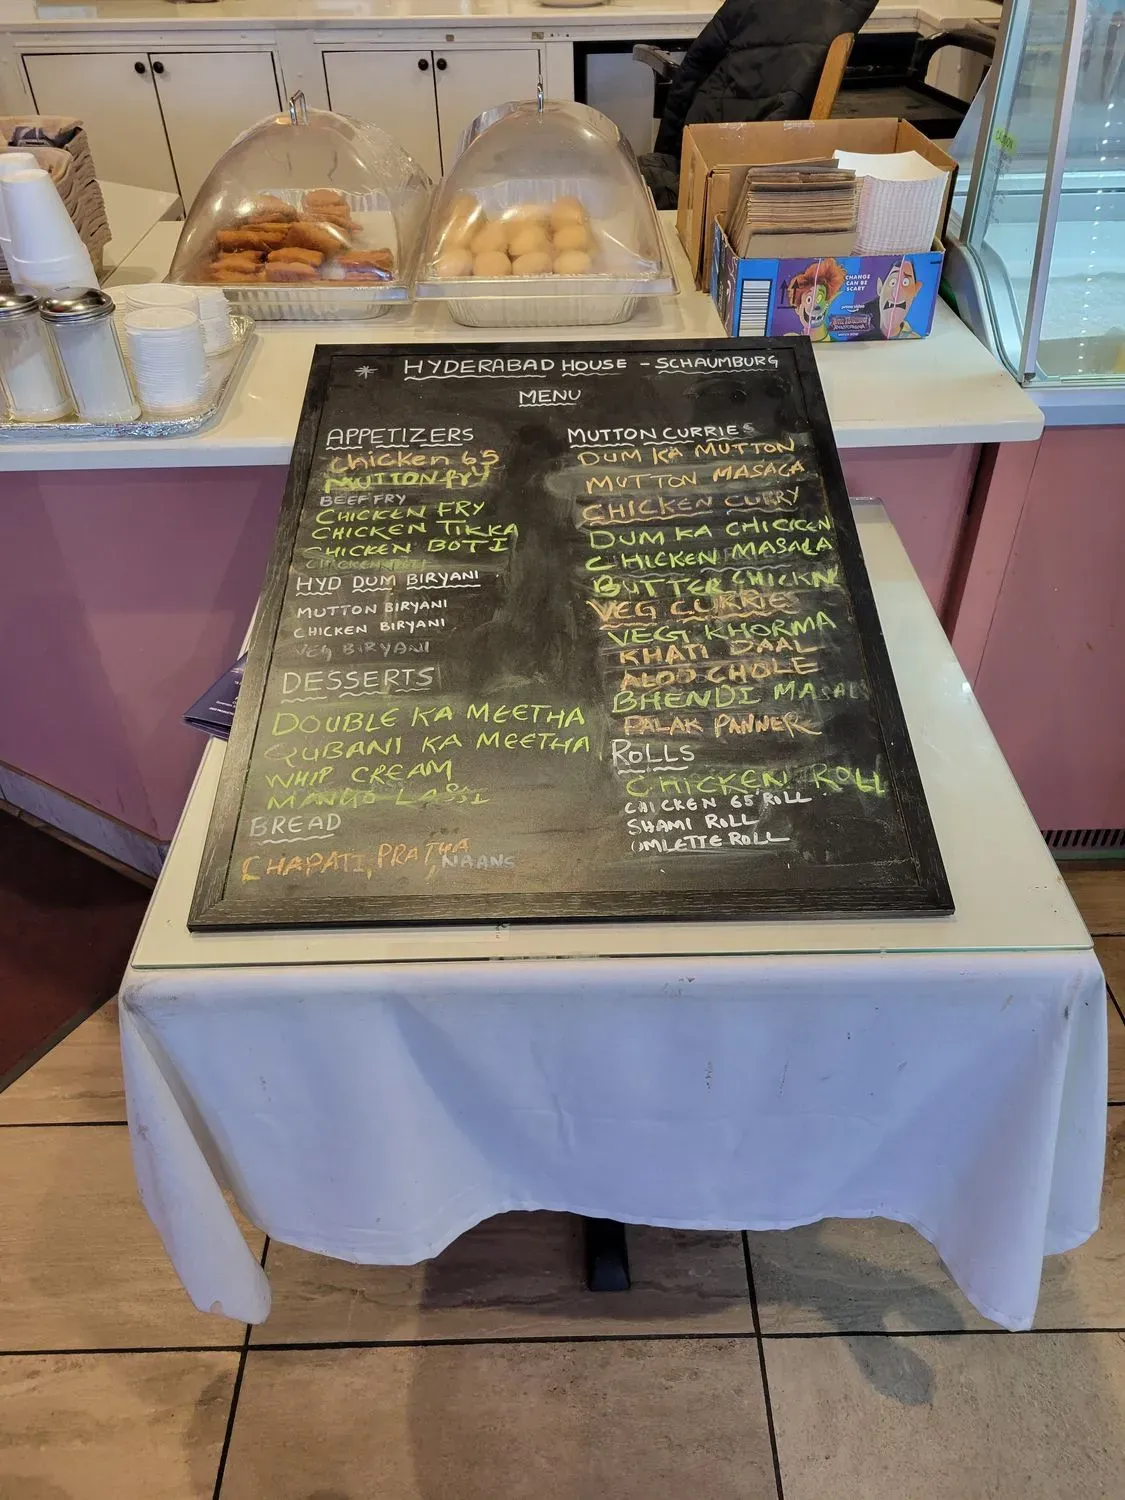 HYDERABAD HOUSE - SCHAUMBURG
MENU
APPETIZERS
Chicken 65
MUTTON fry
BEEF FRY
CHICKEN FRY
CHICKEN TIKKA
CHICKEN BOTI
HYD DUM BIRYANI
MUTTON BIRYANI
CHICKEN BIRYANI
VEG BIRYANI
DESSERTS
DOUBLE KA MEETHA
QUBANI KA MEETHA
WHIP CREAM
MANGO LASSI
BREAD
CHAPATI, PRATHA, NAANS
MUTTON CURRIES
DUM KA MUTTON
MUTTON MASALA
CHICKEN CURRY
DUM KA CHICKEN
CHICKEN MASALA
BUTTER CHICKN
VEG CURRIES
VEGI KHORMA
KHATI DAAL
ALOO CHOLE
BHENDI MASALA
PALAK PANNER
ROLLS
CHICKEN ROLL
CHICKEN 65 ROLL
SHAMI ROLL
OMLETTE ROLL
CHANGE
CAN BE
SCARY